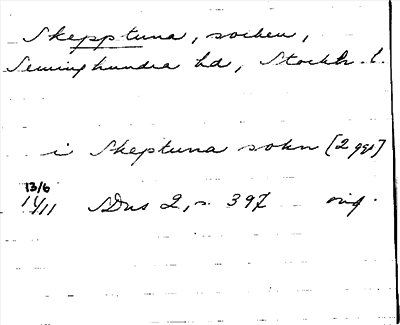 Skepptuna, socken,
Seminghundra hd, Stockh. l.
i Skeptuna sokn [2 ggr]
13/6
1411 SDns 2, s. 397 orig.